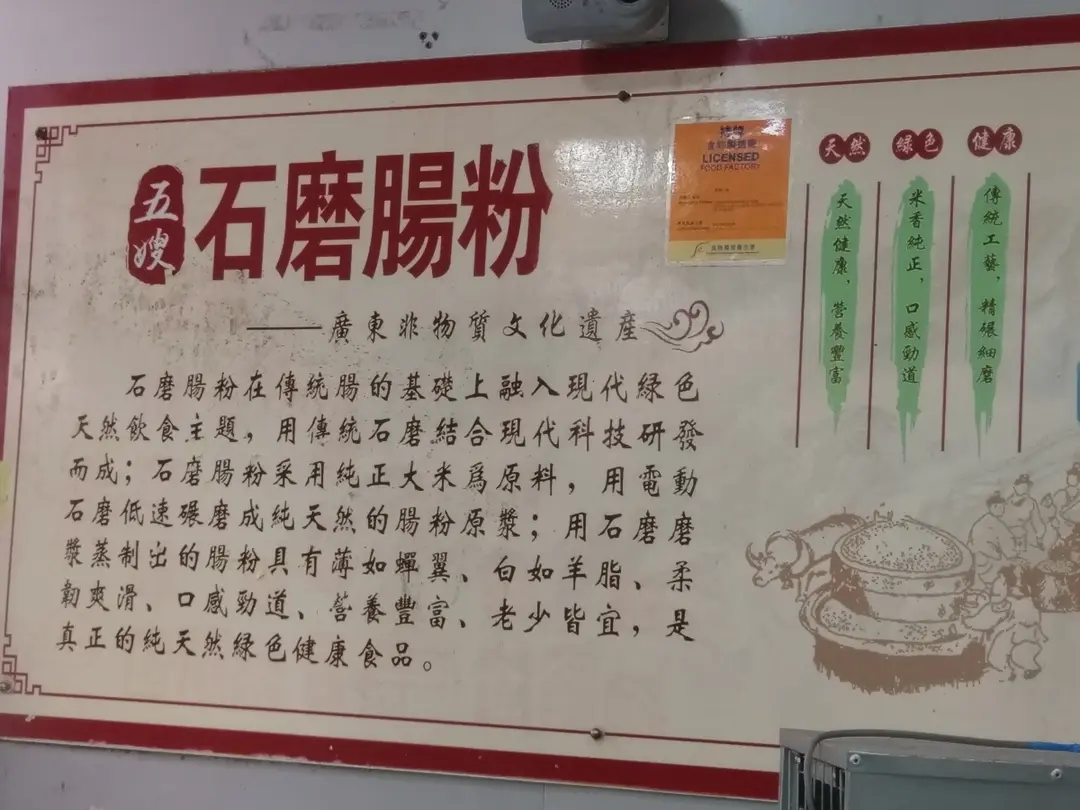 五嫂
石磨腸粉
——廣東非物質文化遺産
石磨腸粉在傳統腸的基礎上融入現代綠色
天然飲食主題，用傳統石磨結合現代科技研發
而成；石磨腸粉采用純正大米爲原料，用電動
石磨低速碾磨成純天然的腸粉原漿；用石磨磨
漿蒸制出的腸粉具有薄如蟬翼、白如羊脂、柔
韌爽滑、口感勁道、營養豐富、老少皆宜，是
真正的純天然綠色健康食品。
LICENSED
FOOD FACTORY
天然
綠色
健康
天然健康，營養豐富
米香純正，口感勁道
傳統工藝，精碾細磨